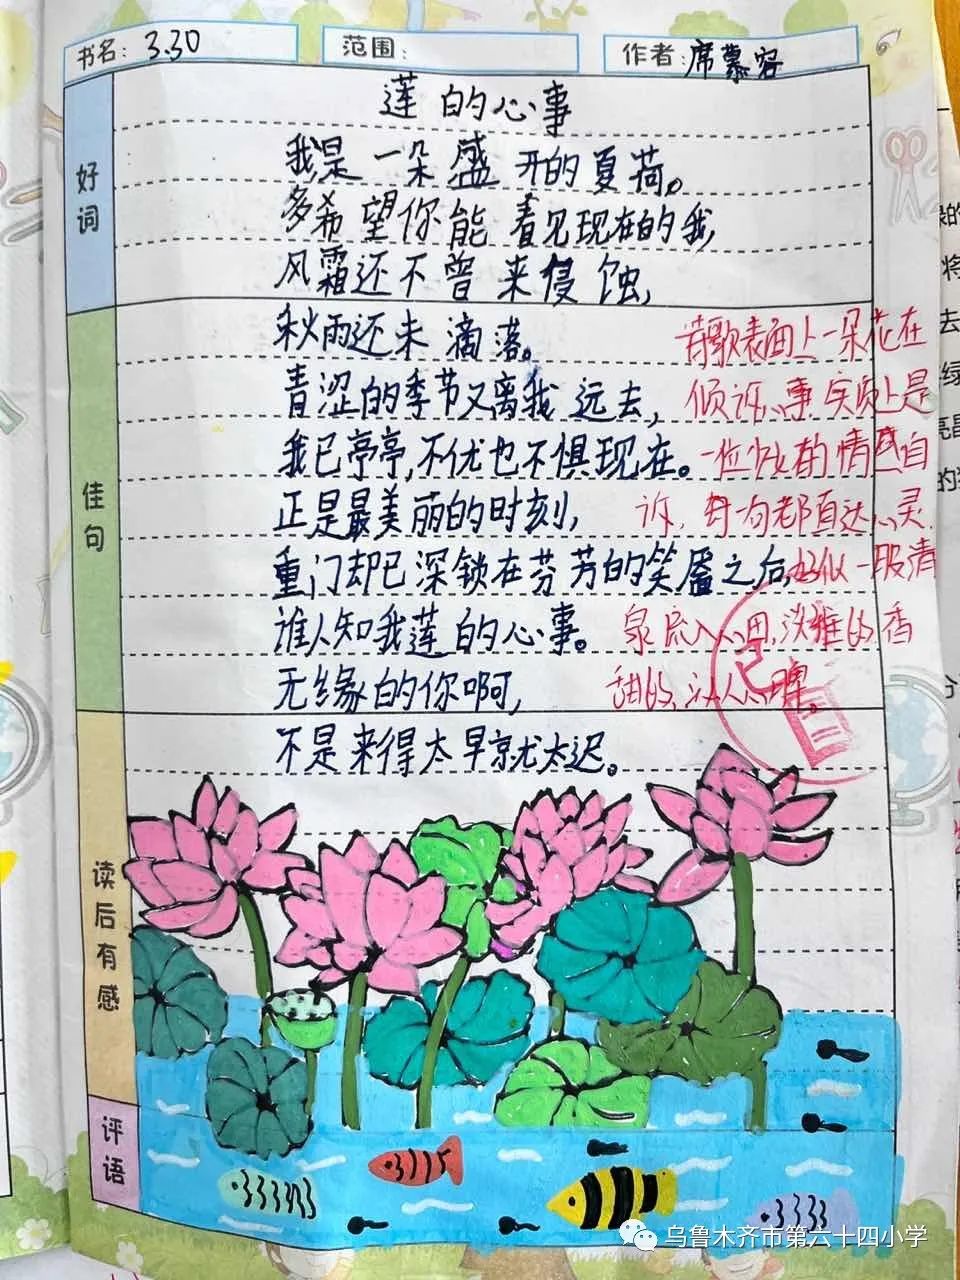 书名: 3.30
范围:
作者: 席慕容
莲的心事
好词
我是一朵盛开的夏荷。
多希望你能看见现在的我,
风霜还不曾来侵蚀,
佳句
秋雨还未滴落。
青涩的季节又离我远去,
我已亭亭,不优也不惧现在。
正是最美丽的时刻,
重门却已深锁在芬芳的笑靥之后,
谁人知我莲的心事。
无缘的你啊,
不是来得太早就尤太迟。
诗歌表面上一朵花在
倾诉心事实质上是
一位少女的情感自
诉,每句都直达心灵
好似一股清
泉流入心田,淡雅的香
甜的沁人心脾。
已
读后有感
评语
乌鲁木齐市第六十四小学